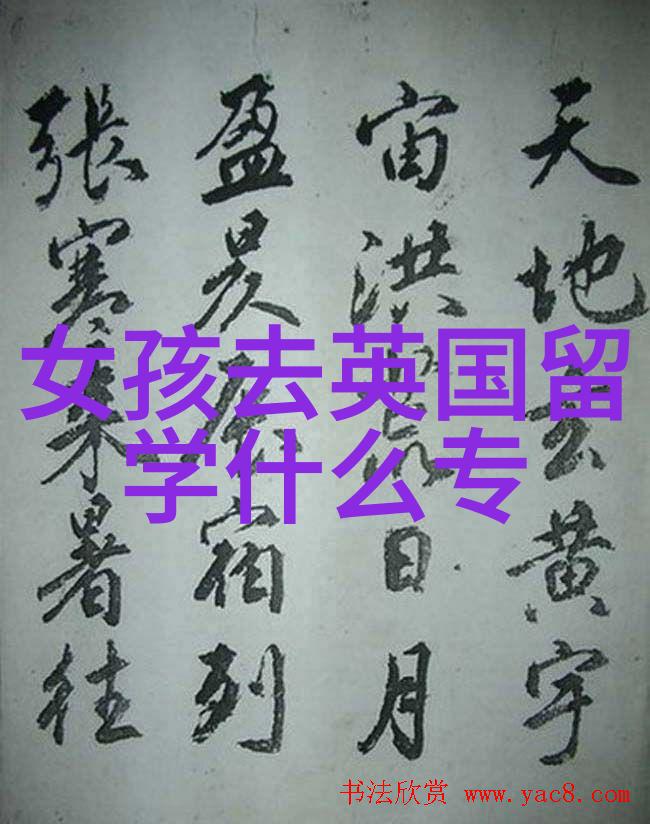 天地玄黄宇
宙洪荒日月
盈昃辰宿列
張寒来暑往
女孩去英国留
学什么专
书法欣赏 www.yac8.com